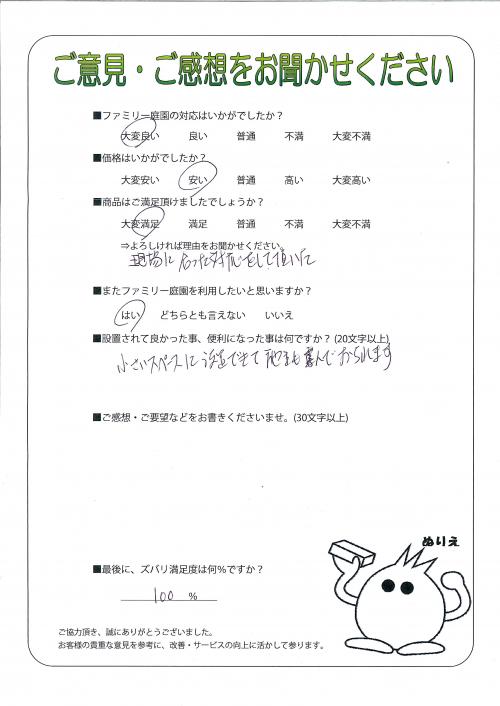 ご意見・ご感想をお聞かせください
■ファミリー庭園の対応はいかがでしたか？
大変良い 良い 普通 不満 大変不満
■価格はいかがでしたか？
大変安い 安い 普通 高い 大変高い
■商品はご満足頂けましたでしょうか？
大変満足 満足 普通 不満 大変不満
⇒よろしければ理由をお聞かせください。
現場に合った対応をして頂いた
■またファミリー庭園を利用したいと思いますか？
はい どちらとも言えない いいえ
■設置されて良かった事、便利になった事は何ですか？(20文字以上)
小さいスペースに設置できて も喜んでおられます
■ご感想・ご要望などをお書きくださいませ。(30文字以上)
ぬりえ
■最後に、ズバリ満足度は何％ですか？
100 ％
ご協力頂き、誠にありがとうございました。
お客様の貴重な意見を参考に、改善・サービスの向上に活かして参ります。